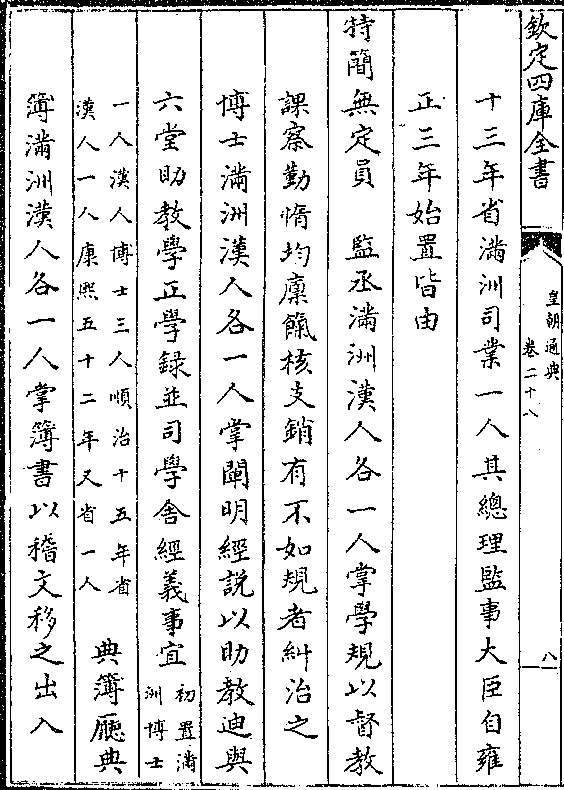 欽定四庫全書
皇朝通典
卷二十八
八
十三年省滿洲司業一人其總理監事大臣自雍
正三年始置皆由
特簡無定員　監丞滿洲漢人各一人掌學規以督教
課察勤惰均廩餼核支銷有不如規者糾治之
博士滿洲漢人各一人掌闡明經說以助教迪與
六堂助教學正學録並司學舍經義事宜初置滿洲博士
一人漢人博士三人順治十五年省
漢人一人康熙五十二年又省一人　典簿廳典
簿滿洲漢人各一人掌簿書以稽文移之出入